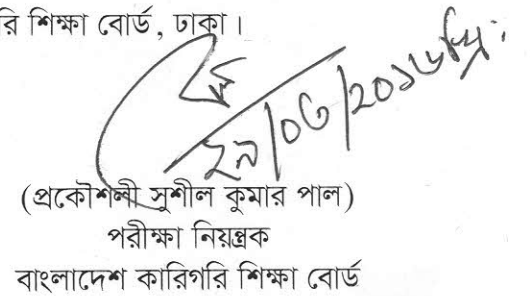 রি শিক্ষা বোর্ড, ঢাকা।
(প্রকৌশলী সুশীল কুমার পাল)
পরীক্ষা নিয়ন্ত্রক
বাংলাদেশ কারিগরি শিক্ষা বোর্ড